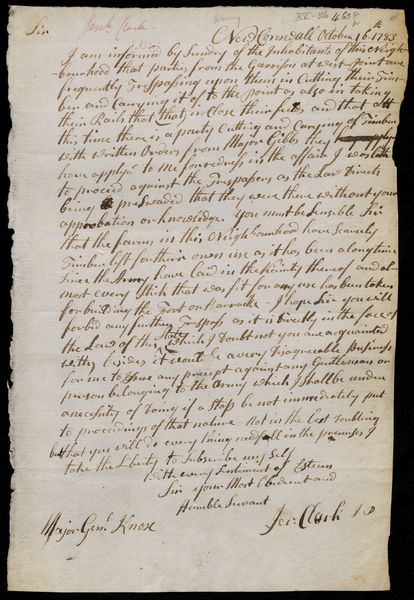 Jerh. Clark
4658
Sir New Cornwall October 16th 1783
I am informed by Sundry of the Inhabitants of this Neigh-
bourhood that parties from the Garrison at west point are
frequently Trespassing upon them in Cutting their Tim-
ber and Carrying it of to the point as also in taking
their Rails that in Close their and that att
this time there is a party Cutting and Carying of Timber
with written Orders from Major Gibbs they
have apply'd to me for redress in the affair I
to proceed against the Trespassers as the Law Directs
being perswaded that they were there without your
approbation or knowledge. You must be sensible Sir
that the farms in this Neighbourhood have scarcely
Timber left for their own use as it has been a long time
since the Army have laid in the vicinity thereof and al-
most every stick that was fit for any use has been taken
for building the Fort or Barracks. I hope Sir you will
forbid any further Trespass as it is directly in the face of
the Law of the State which I doubt not you are acquainted
with besides it would be a very disagreeable business
for me to Issue any precept against any Gentleman or
person belonging to the Army which I shall be under
a necessity of doing if a Stop be not immediately put
to proceedings of that nature. Not in the least doubting
but that you will do every thing in the premises I
take the Liberty to Subscribe my Self
with every Sentiment of Esteem
Sir your Most Obedient and
Humble Servant
Major Genl. Knox Jer. Clark